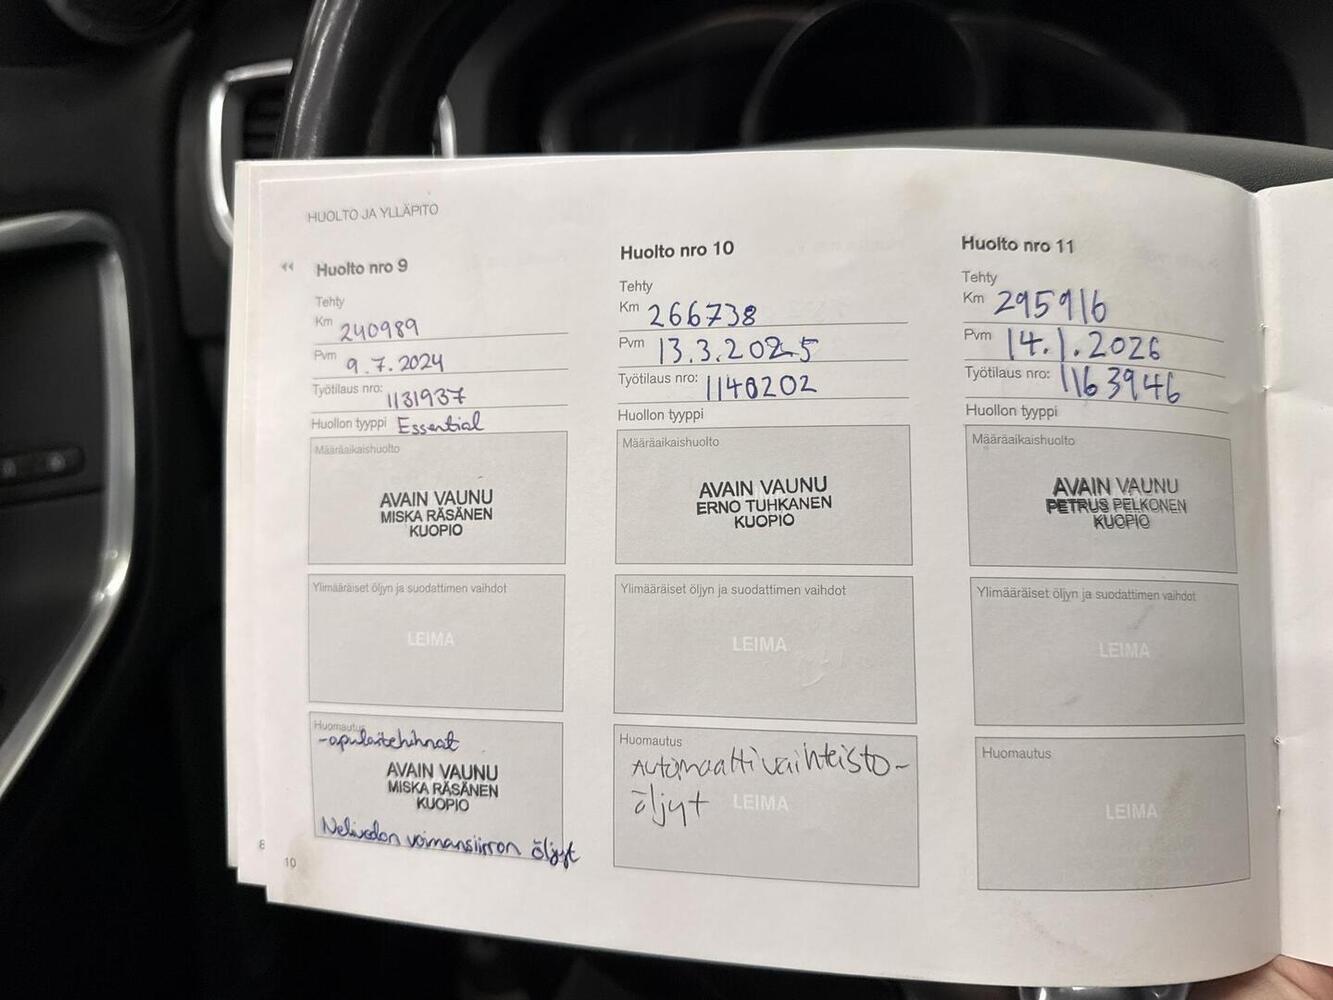 HUOLTO JA YLLÄPITO
Huolto nro 9
Tehty
Km 240989
Pvm 9.7.2024
Työtilaus nro: 1131937
Huollon tyyppi Essential
Määräaikaishuolto
AVAIN VAUNU
MISKA RÄSÄNEN
KUOPIO
Ylimääräiset öljyn ja suodattimen vaihdot
LEIMA
Huomautus
-apulaitehihnat
AVAIN VAUNU
MISKA RÄSÄNEN
KUOPIO
Nelivedon voimansiirron öljyt
8
10
Huolto nro 10
Tehty
Km 266738
Pvm 13.3.2025
Työtilaus nro: 1140202
Huollon tyyppi
Määräaikaishuolto
AVAIN VAUNU
ERNO TUHKANEN
KUOPIO
Ylimääräiset öljyn ja suodattimen vaihdot
LEIMA
Huomautus
Automaattivaihteisto-
öljyt LEIMA
Huolto nro 11
Tehty
Km 295916
Pvm 14.1.2026
Työtilaus nro: 1163946
Huollon tyyppi
Määräaikaishuolto
AVAIN VAUNU
PETRUS PELKONEN
KUOPIO
Ylimääräiset öljyn ja suodattimen vaihdot
LEIMA
Huomautus
LEIMA